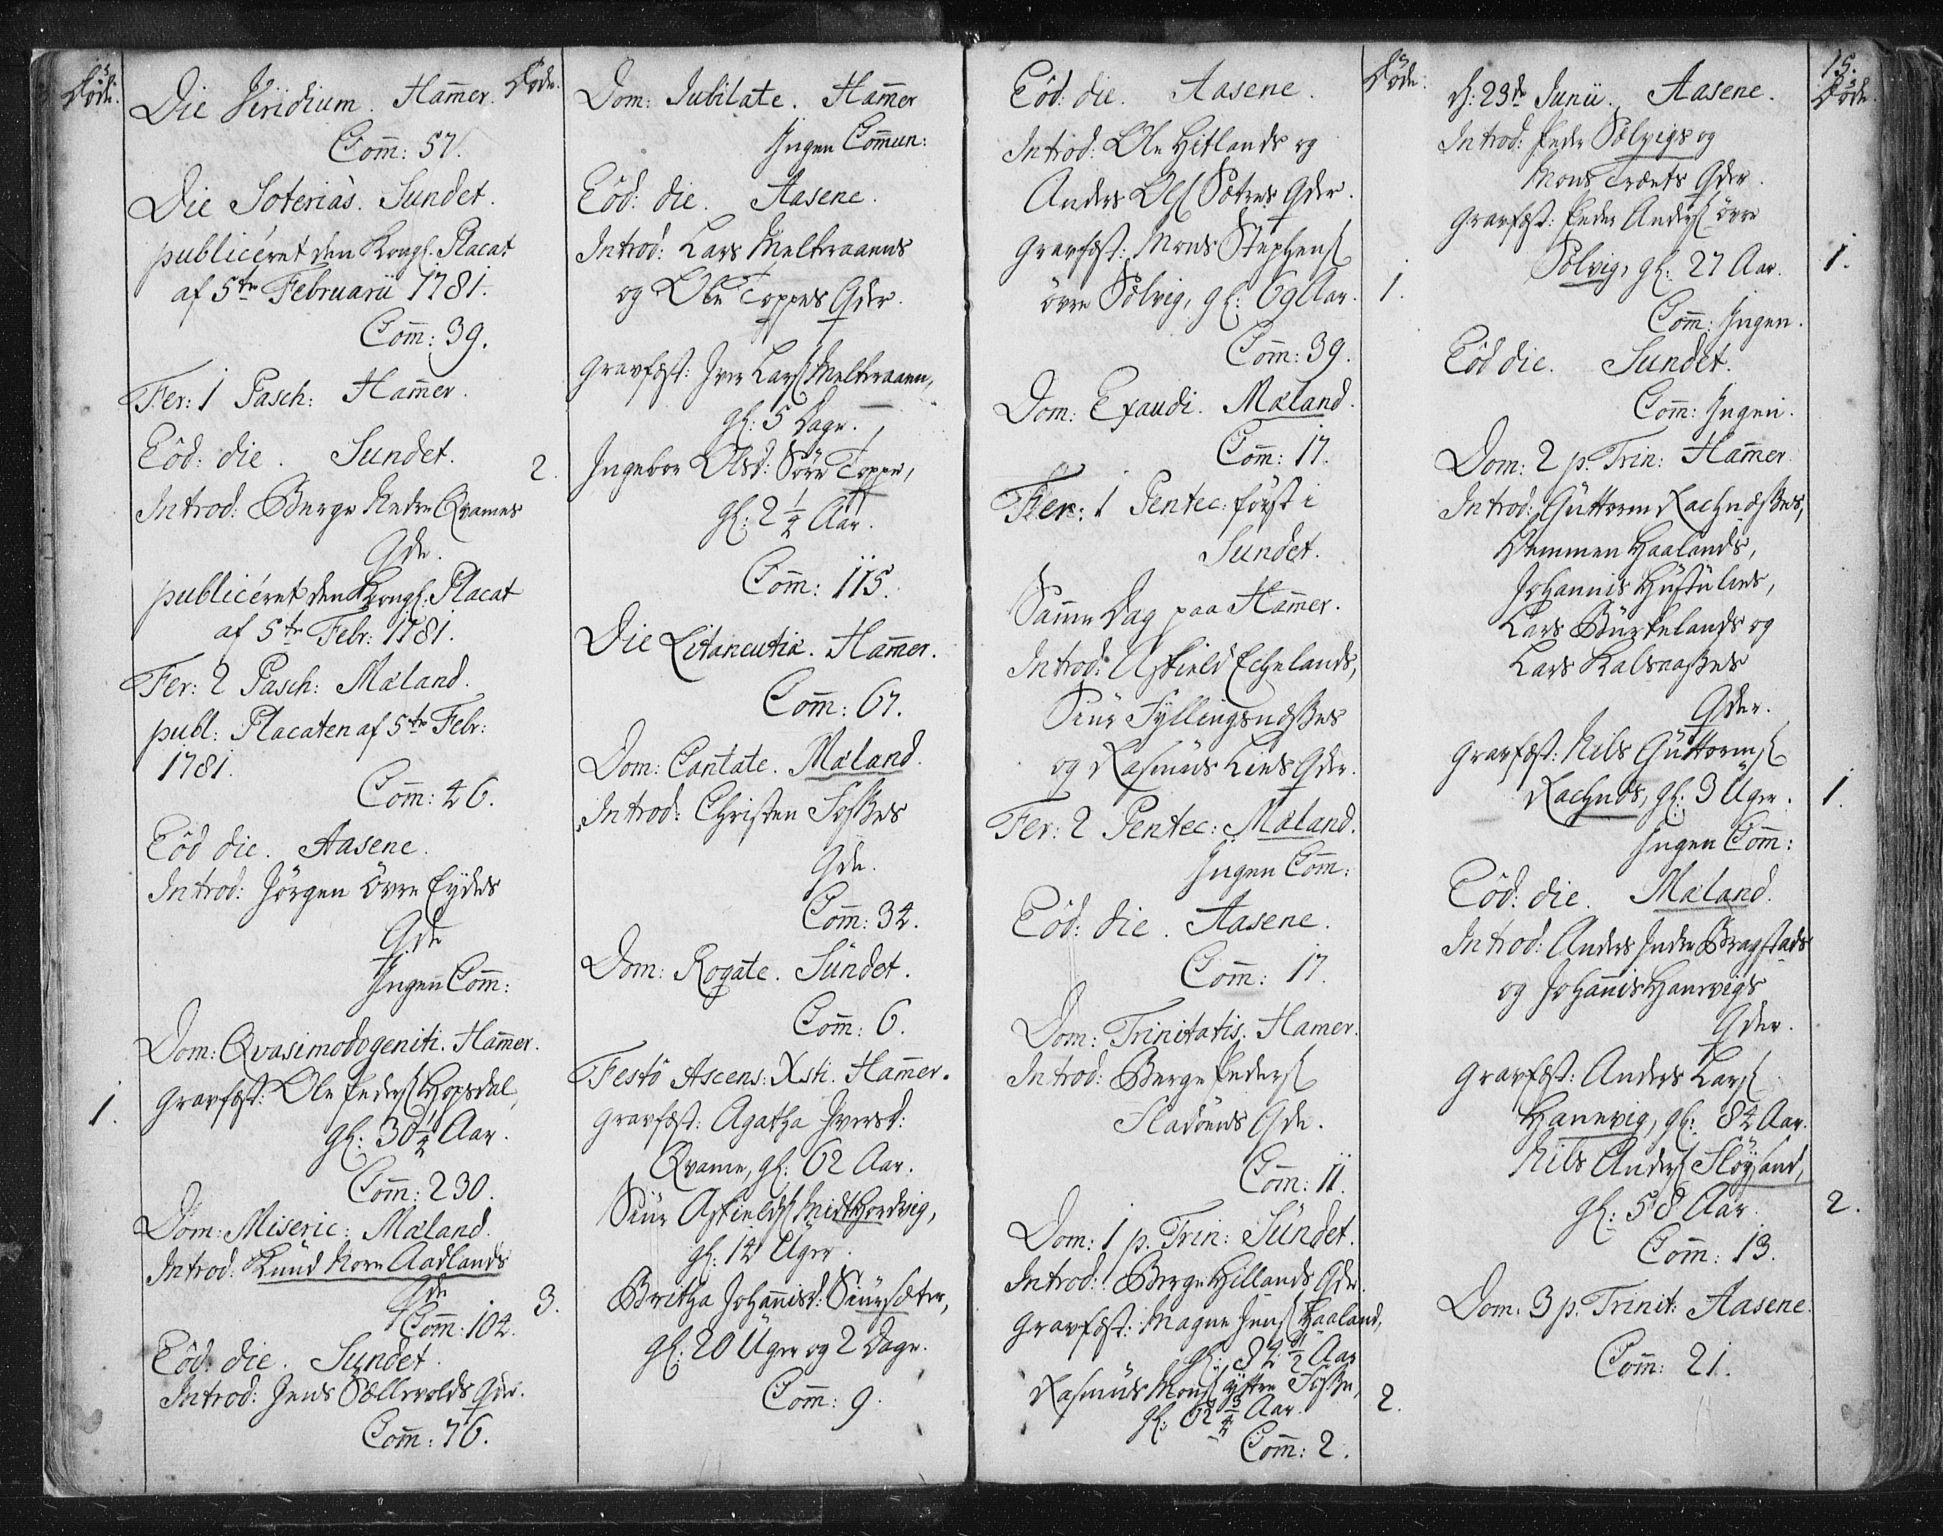 Døde.
Die Viridium. Ham̄er.
Com̄: 57.
Die Soteriàs. Sundet.
publicéret den Kongl. Placat
af 5te Februarii 1781.
Com̄: 39.
Fer: 1 Pasch: Ham̄er.
Eôd: die. Sundet.
Introd: Berge Nedre Qvames
Qde.
publicéret den Kongl. Placat
af 5te Febr: 1781.
Fer: 2 Pasch: Mæland.
publ: Placaten af 5te Febr:
1781.
Com̄: 46.
Eôd die. Aasene.
Introd: Jörgen övre Eydes
Qde
Jngen Com̄:
Dom: Qvasimodogeniti. Ham̄er.
1. Gravfæst: Ole Peders. Hopsdal,
gl: 30 1/4 Aar.
Com̄: 230.
Dom: Miseric: Mæland.
Introd: Knud Aadlands
Qde
Com̄: 104.
Eôd: die. Sundet.
Introd: Jens Sællevolds Qde.
Com̄: 76.
Døde.
Dom: Jubilate. Ham̄er
Jngen Com̄un:
Eôd: die. Aasene.
Introd: Lars Meltvraaens
og Ole Toppes Qder.
Gravfæst: Jver Lars. Meltvraaen,
gl: 5 Dage.
2. Ingebor Olsd: Söre Toppe,
gl: 2 1/4 Aar.
Com̄: 115.
Die Litaneutia. Ham̄er.
Com̄: 67.
Dom: Cantate. Mæland.
Introd: Christen Fosses
Qde.
Com̄: 34.
Dom: Rogate. Sundet.
Com̄: 6.
Festô Ascens: Xsti. Ham̄er.
Gravfæst: Agatha Jversd:
Qvame, gl: 62 Aar.
Siur Askields. Midthordvig,
gl: 14 Uger.
3. Britha Johan̄isd: Siursæter,
gl: 20 Uger og 2 Dage.
Com̄: 9.
Eôd: die. Aasene.
Introd: Ole Hetlands og
Anders Ols. Sætres Qder.
Gravfæst: Mons Stephens.
övre Solvig, gl: 69 Aar.
Com̄: 39.
Dom: Exaudi. Mæland.
Com̄: 17.
Fer: 1 Pentec: först i
Sundet.
Sam̄e Dag paa Ham̄er.
Introd: Askield Echelands,
Siur Fyllingsnæsses
og Rasmus Lies Qder.
Fer: 2 Pentec: Mæland.
Jngen Com̄:
Eôd: die. Aasene.
Com̄: 17.
Dom: Trinitatis: Hamer.
Introd: Berge Peders.
Fladöens Qde.
Com̄: 11.
Dom: 1 p. Trin: Sundet.
Introd: Berge Hillands Qde.
Gravfæst: Magne Jens. Haaland,
Aar
Rasmus Mons. ystre Fosse,
gl: 62 3/4 Aar.
Com̄: 2.
Døde.
1.
2.
d: 23de Junii. Aasene.
Introd: Peder Solvigs og
Mons Træets Qder.
Gravfæst: Peder Anders. övre
Solvig, gl: 27 Aar.
Com̄: Jngen.
Eôd die. Sundet.
Com̄: Jngen.
Dom: 2 p. Trin: Ham̄er
Introd: Guttorm Rachnæsses,
Haalands,
Johannis Hustulens,
Lars Birkelands og
Lars Kalsaasses
Qder.
Gravfæst: Nils Guttorms.
Rachnæs, gl: 3 Uger.
Jngen Com̄:
Eôd: die. Mæland.
Introd: Anders Jndre Bragstads
og Johan̄is Hanevigs
Qder.
Gravfæst: Anders Lars.
Hanevig, gl: 84 Aar.
Nils Anders. Flöysand,
gl: 58 Aar.
Com̄: 13.
Dom: 3 p. Trinit: Aasene.
Com̄: 21.
15.
Døde.
1.
1.
2.